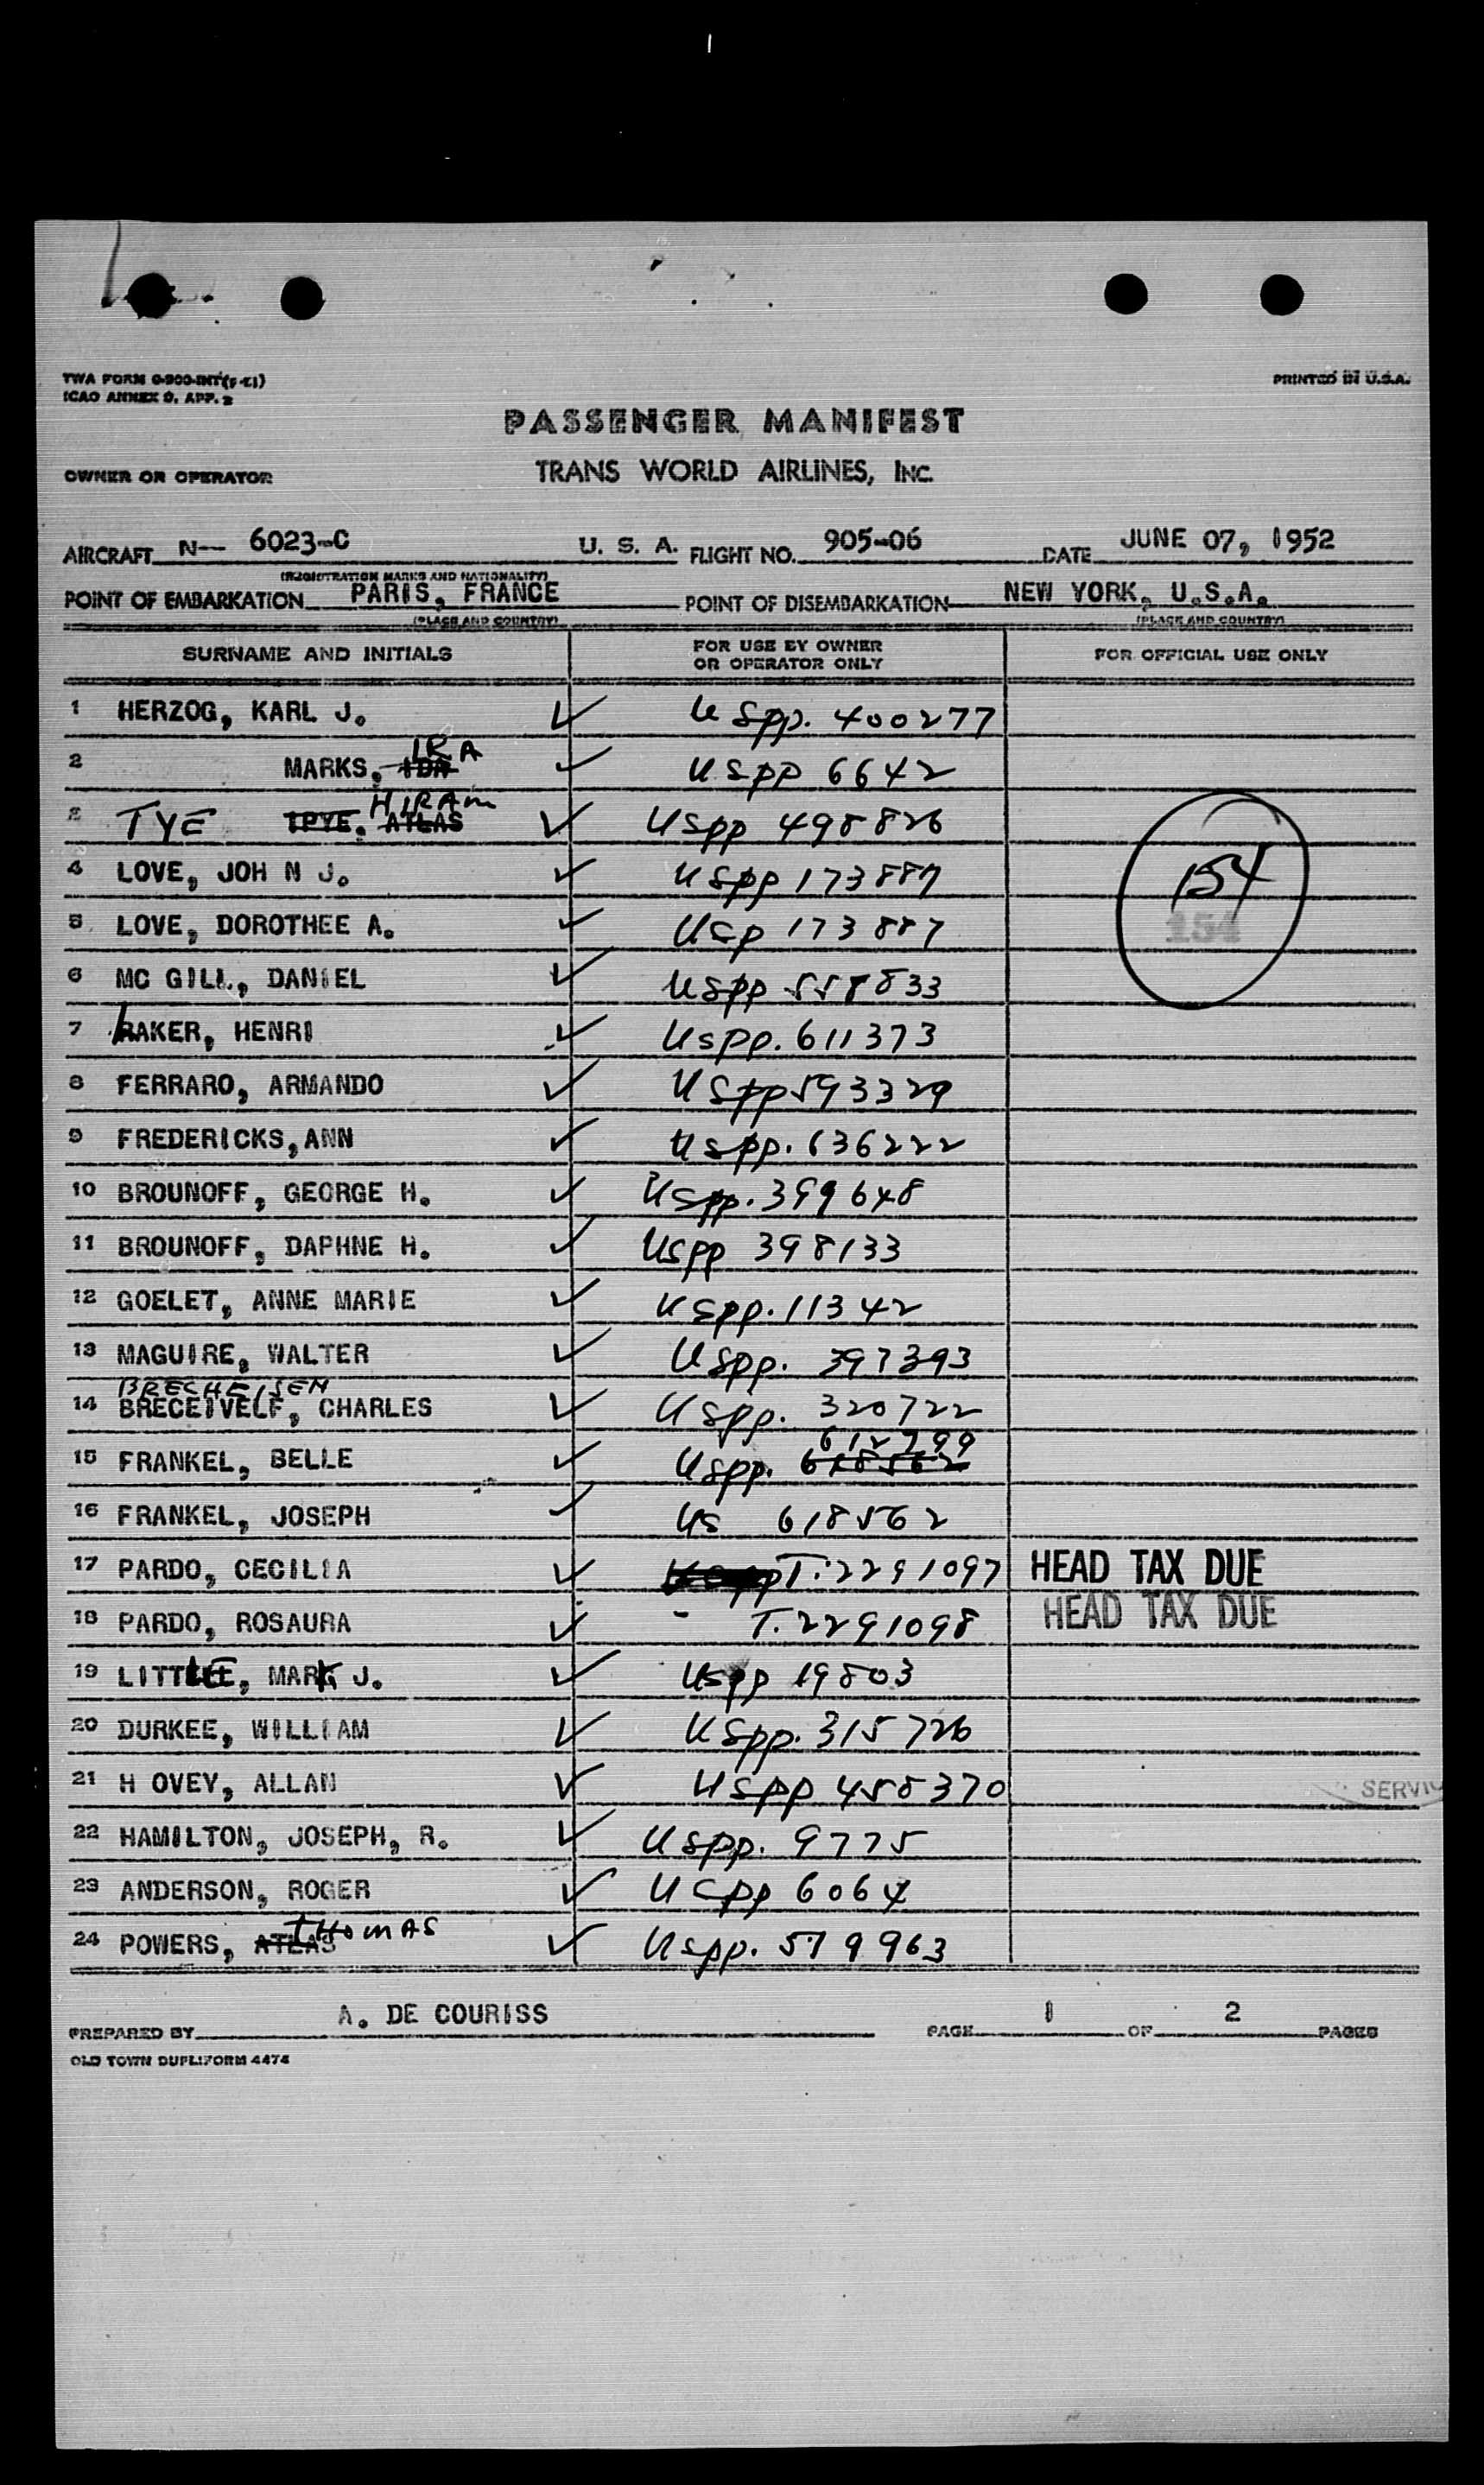 TWA FORM 0-900-INT(5-51)
ICAO ANNEX 9, APP. 2
PRINTED IN U.S.A.
PASSENGER MANIFEST
OWNER OR OPERATOR TRANS WORLD AIRLINES, INC.
AIRCRAFT N— 6023-C U. S. A. FLIGHT NO. 905-06 DATE JUNE 07, 1952
(REGISTRATION MARKS AND NATIONALITY)
POINT OF EMBARKATION PARIS, FRANCE POINT OF DISEMBARKATION NEW YORK, U.S.A.
(PLACE AND COUNTRY) (PLACE AND COUNTRY)
SURNAME AND INITIALS FOR USE BY OWNER OR OPERATOR ONLY FOR OFFICIAL USE ONLY
1 HERZOG, KARL J. ✓ USpp. 400277
2 MARKS, IDA IRA ✓ USpp 6642
3 TYE TPYE, ATLAS HIRAM ✓ USpp 498826
4 LOVE, JOH N J. ✓ USpp 173887 154
5 LOVE, DOROTHEE A. ✓ USp 173887 154
6 MC GILL, DANIEL ✓ USpp 558833
7 BAKER, HENRI ✓ USpp. 611373
8 FERRARO, ARMANDO ✓ USpp 593329
9 FREDERICKS, ANN ✓ USpp. 636222
10 BROUNOFF, GEORGE H. ✓ USpp. 399648
11 BROUNOFF, DAPHNE H. ✓ USpp 398133
12 GOELET, ANNE MARIE ✓ USpp. 11342
13 MAGUIRE, WALTER ✓ USpp. 397393
BRECHEISEN
14 BRECEIVELF, CHARLES ✓ USpp. 320722
612799
15 FRANKEL, BELLE ✓ USpp. 618562
16 FRANKEL, JOSEPH ✓ US 618562
17 PARDO, CECILIA ✓ T. 2291097 HEAD TAX DUE
18 PARDO, ROSAURA ✓ - T. 2291098 HEAD TAX DUE
19 LITTLE, MARK J. ✓ USpp 19803
20 DURKEE, WILLIAM ✓ USpp. 315726
21 H OVEY, ALLAN ✓ USpp 458370
SERVIC
22 HAMILTON, JOSEPH, R. ✓ USpp. 9775
23 ANDERSON, ROGER ✓ USpp 6064
24 POWERS, ATLAS THOMAS ✓ USpp. 519963
PREPARED BY A. DE COURISS PAGE 1 OF 2 PAGES
OLD TOWN DUPLIFORM 4474